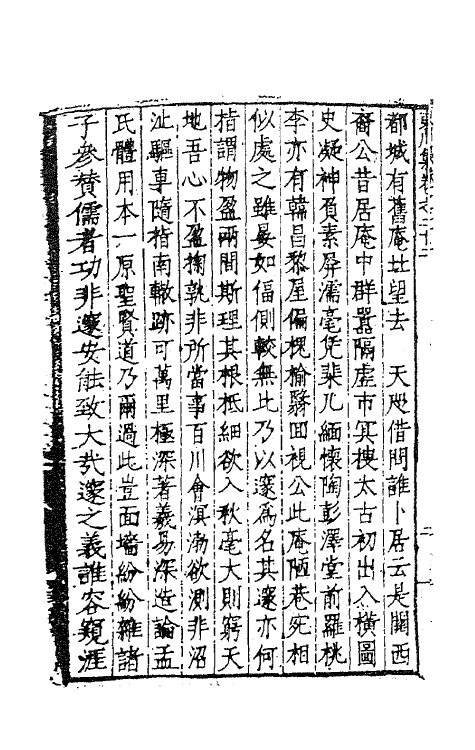 都城有舊庵址望去　天咫借問誰卜居云是關西
裔公昔居庵中群囂隔虛市冥搜太古初出入橫圖
史凝神負素屏濡毫凭棐几緬懷陶彭澤堂前羅桃
李亦有韓昌黎屋偏槐榆翳回視公此庵陋巷死相
似處之雖晏如偪側較無比乃以邃爲名其邃亦何
指謂物盈兩間斯理其根柢細欲入秋毫大則窮天
地吾心不盈掬孰非所當事百川會溟渤欲測非沼
沚驅車隨指南轍跡可萬里極深著羲易深造論孟
氏體用本一原聖賢道乃爾過此豈面墻紛紛雜諸
子參贊儒者功非邃安能致大哉邃之義誰容窺涯